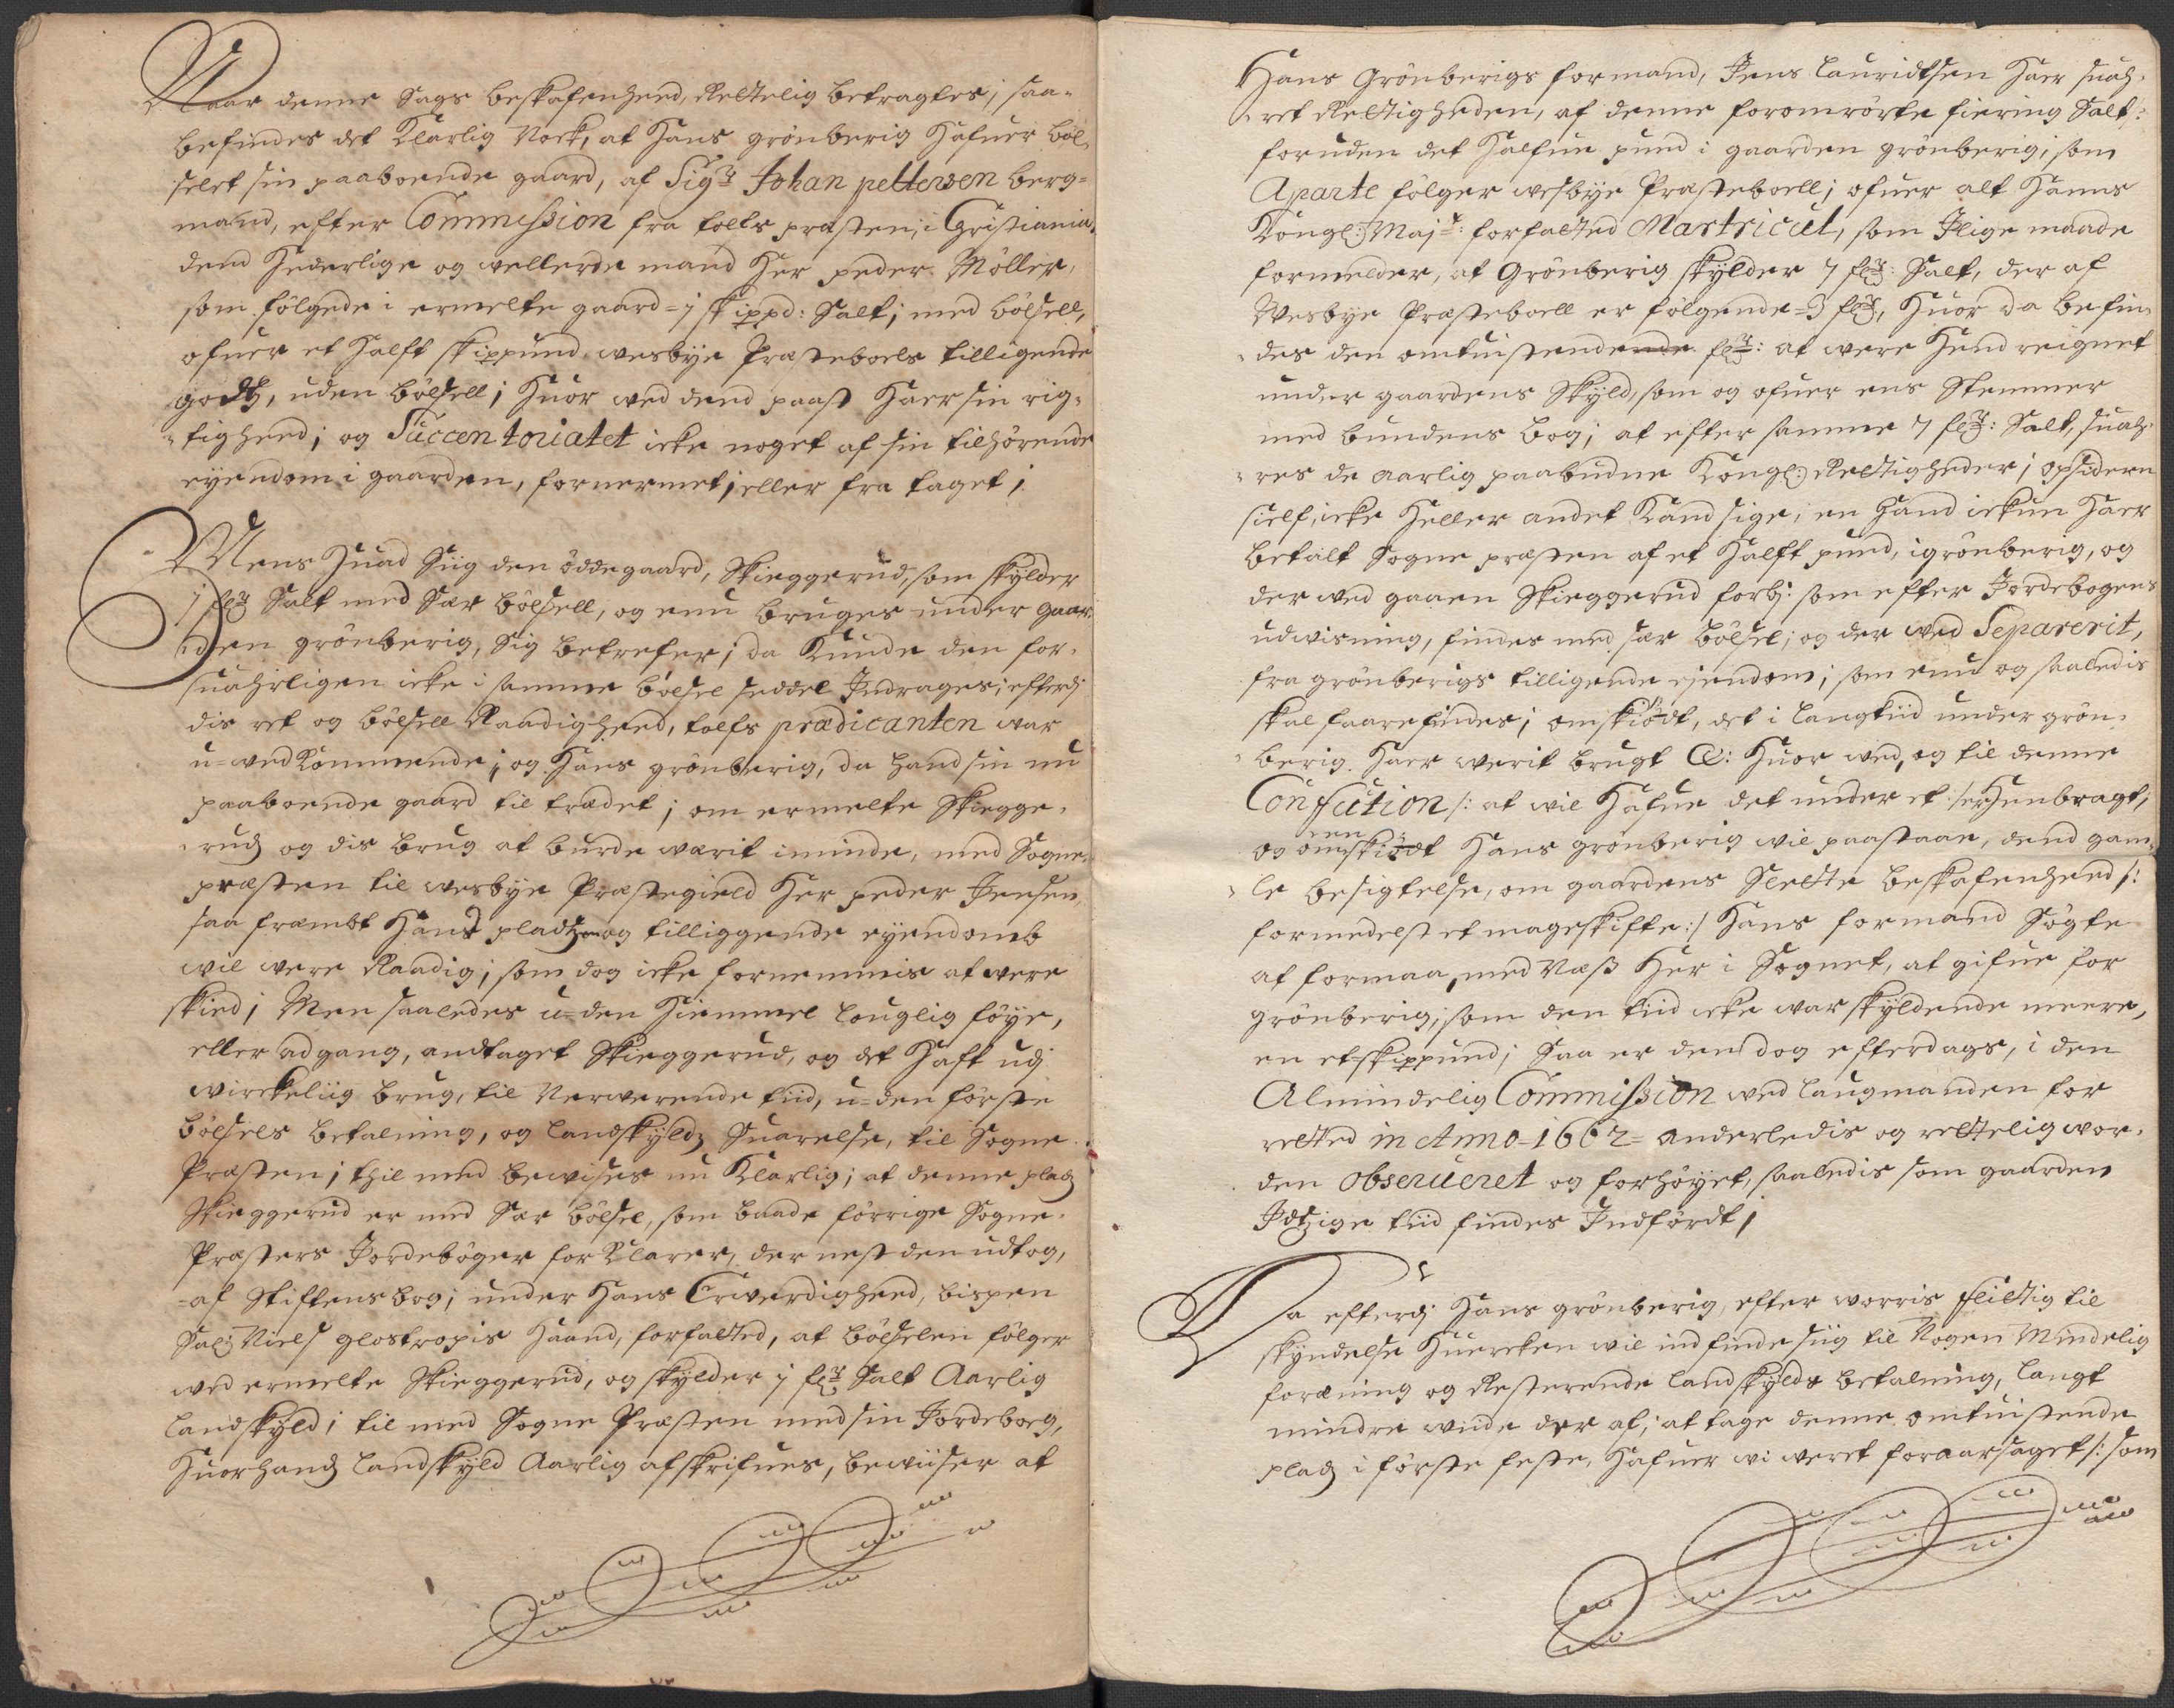 Naar denne Sags beskafenheed, Rettelig betragtes; saa-
befindes det Klarlig Nock, at Hans grönberig Hafuer böl-
selet sin paaboende gaard, af Sigr Johan pettersen berg-
mand, efter Commission fra tolfr præsten, i Christiania,
dend Hederlige og wellerde mand Her peder Möller,
som fölgede i ermelte gaard = j skippd: Salt; med bölsell,
ofuer et Halft skippund, wesbÿe Præsteboels tilligende
godtz, uden bölsell; Huor wed dend paast Haer sin rig-
tigheed; og Succentoriatet icke noget af sin tilhörende
eyendom i gaarden, fornermet; eller fra taget;
Mens Huad Siig den öddegaard, Skieggerud, som skÿlder
j flr Salt med Sær bölsell, og enu bruges under gaar-
den grönberig, Sig betrefer; da Kunde den for-
suahrligen icke i samme bölsel seddel Indrages; efterdj
dis ret og bölsell Raadigheed, tolfr prædicanten war
u=wedkommende; og Hans grönberig, da Hand sin nu
paaboende gaard til trædet; om ermelte Skiegge-
rud og dis brug at burde wærit iminde, med Sogne-
præsten til wesbÿe Præstegield Her peder Jensen,
saa fræmbt Hand pladtz og tilliggende eÿendomb
wil were Raadig; som dog icke fornemmis at were
skied; Men saaledes u=den Hiemmel louglig föÿe,
eller adgang, andtaget Skieggerud, og det Haft udj
wirckeliig brug, til Nerwerende tiid, u=den förste
bölsels betalning, og landskÿldz Suarelse, til Sogne
Præsten; thil med bewises nu Klarlig; at denne pladz
Skieggerud er med Sær bölsel, som baade förrige Sogne-
Præsters Jordeböger for Klarer, der nest den udtog,
af Stiftens bog; under Hans Erwerdigheed, bispen
Sal: Niels glostropis Haand, forfatted, at bölselen fölger
wed ermelte Skieggerud, og skÿlder j flr Salt Aarlig
landskÿld; til med Sogne Præsten med sin Jordebog,
Huorhandz landskÿld Aarlig afskrifues, bewiiser at
Hans Grönberigs formand, Jens lauridtsen Haer suah-
ret Rettigheden, af denne foromrörte fiering Salt:
foruden det Halfue pund i gaarden grönberig; som
Aparte fölger wesbÿe Præsteboell; ofuer alt Hanns
Kongl: Majts: forfatted Martricul, som Jlige maade
formelder, at Grönberig skÿlder 7 flr: Salt, der af
Wesbÿe Præsteboell er fölgende = 3 flr, Huor da befin-
des den omtuistende flr: at were Hend reignet
under gaardens Skÿld, som og ofuer ens Stemmer
med bundens bog; at efter samme 7 flr: Salt, suah-
res de aarlig paabudne Kongl: Rettigheder; opsidern
sielf, icke Heller andet Kand sige; en Hand ickun Haer
betalt Sogne præsten af et Halft pund, i grönberig, og
der wed gaaen Skieggerud forbj: som efter Jordebogens
udwisning, findes med sær bölsel; og der wed Separerit,
fra grönberigs tilligende ejendom; som enu og saaledis
skal faarefindes; omskiödt, det i langtiid under grön-
berig Haer werit brugt &: Huor wed, og til denne
Confution /: at wil Hafue det under et: er Henbragt,
og omskiödt Hans grönberig wil paastaae, dend gam-
le besigtelse, om gaardens Slette beskafenheed /:
formedelst et mageskifte :/ Hans formand Sögte
at formaa, med Næß Her i Sognet, at gifue for
grönberig; som den tiid icke war skÿldende meere,
en etskippund; Saa er den dog efterdags, i den
Almindelig Commission wed laugmanden for
retted in Anno = 1662 = anderledis og rettelig wor-
den obserueret og forhöÿet, saaledis som gaarden
Jdtzige tiid findes Indfördt;
Da efterdj Hans grönberig, efter worris flittig til
skÿndelse Huercken wil indfinde siig til Nogen Mindelig
foræning og Resterende landskÿlds betalning, langt
mindre wiide der af; at tage denne omtuistende
pladz i förste feste, Hafuer wi weret foraarsaget /: som